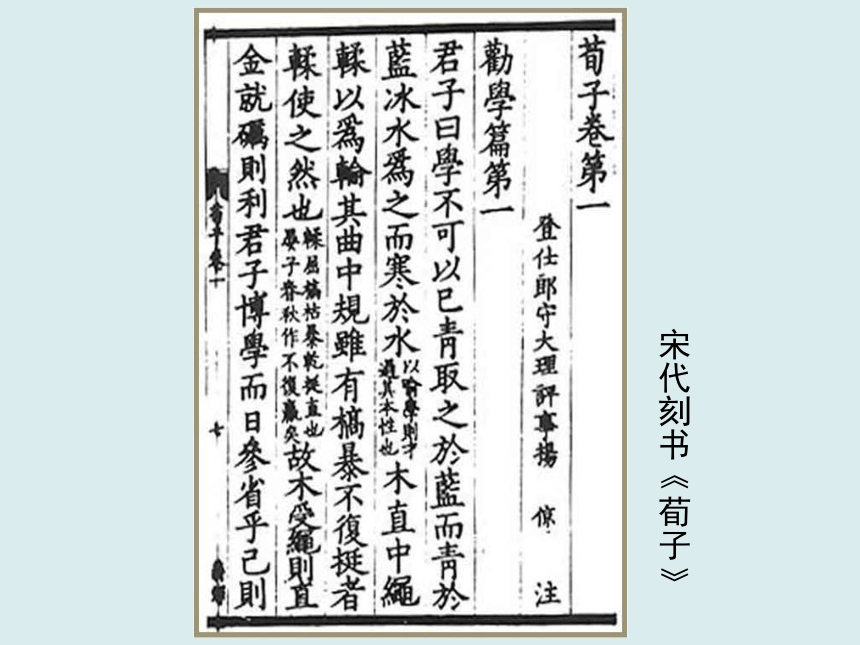 荀子卷第一
登仕郎守大理評事揚 倞 注
勸學篇第一
君子曰學不可以已青取之於藍而青於
藍冰水爲之而寒於水以喻學則才過其本性也木直中繩
輮以爲輪其曲中規雖有槁暴不復挺者
輮使之然也輮屈槁枯暴乾挺直也晏子春秋作不復贏矣故木受繩則直
金就礪則利君子博學而日參省乎己則
荀子卷一 七
宋代刻书《荀子》